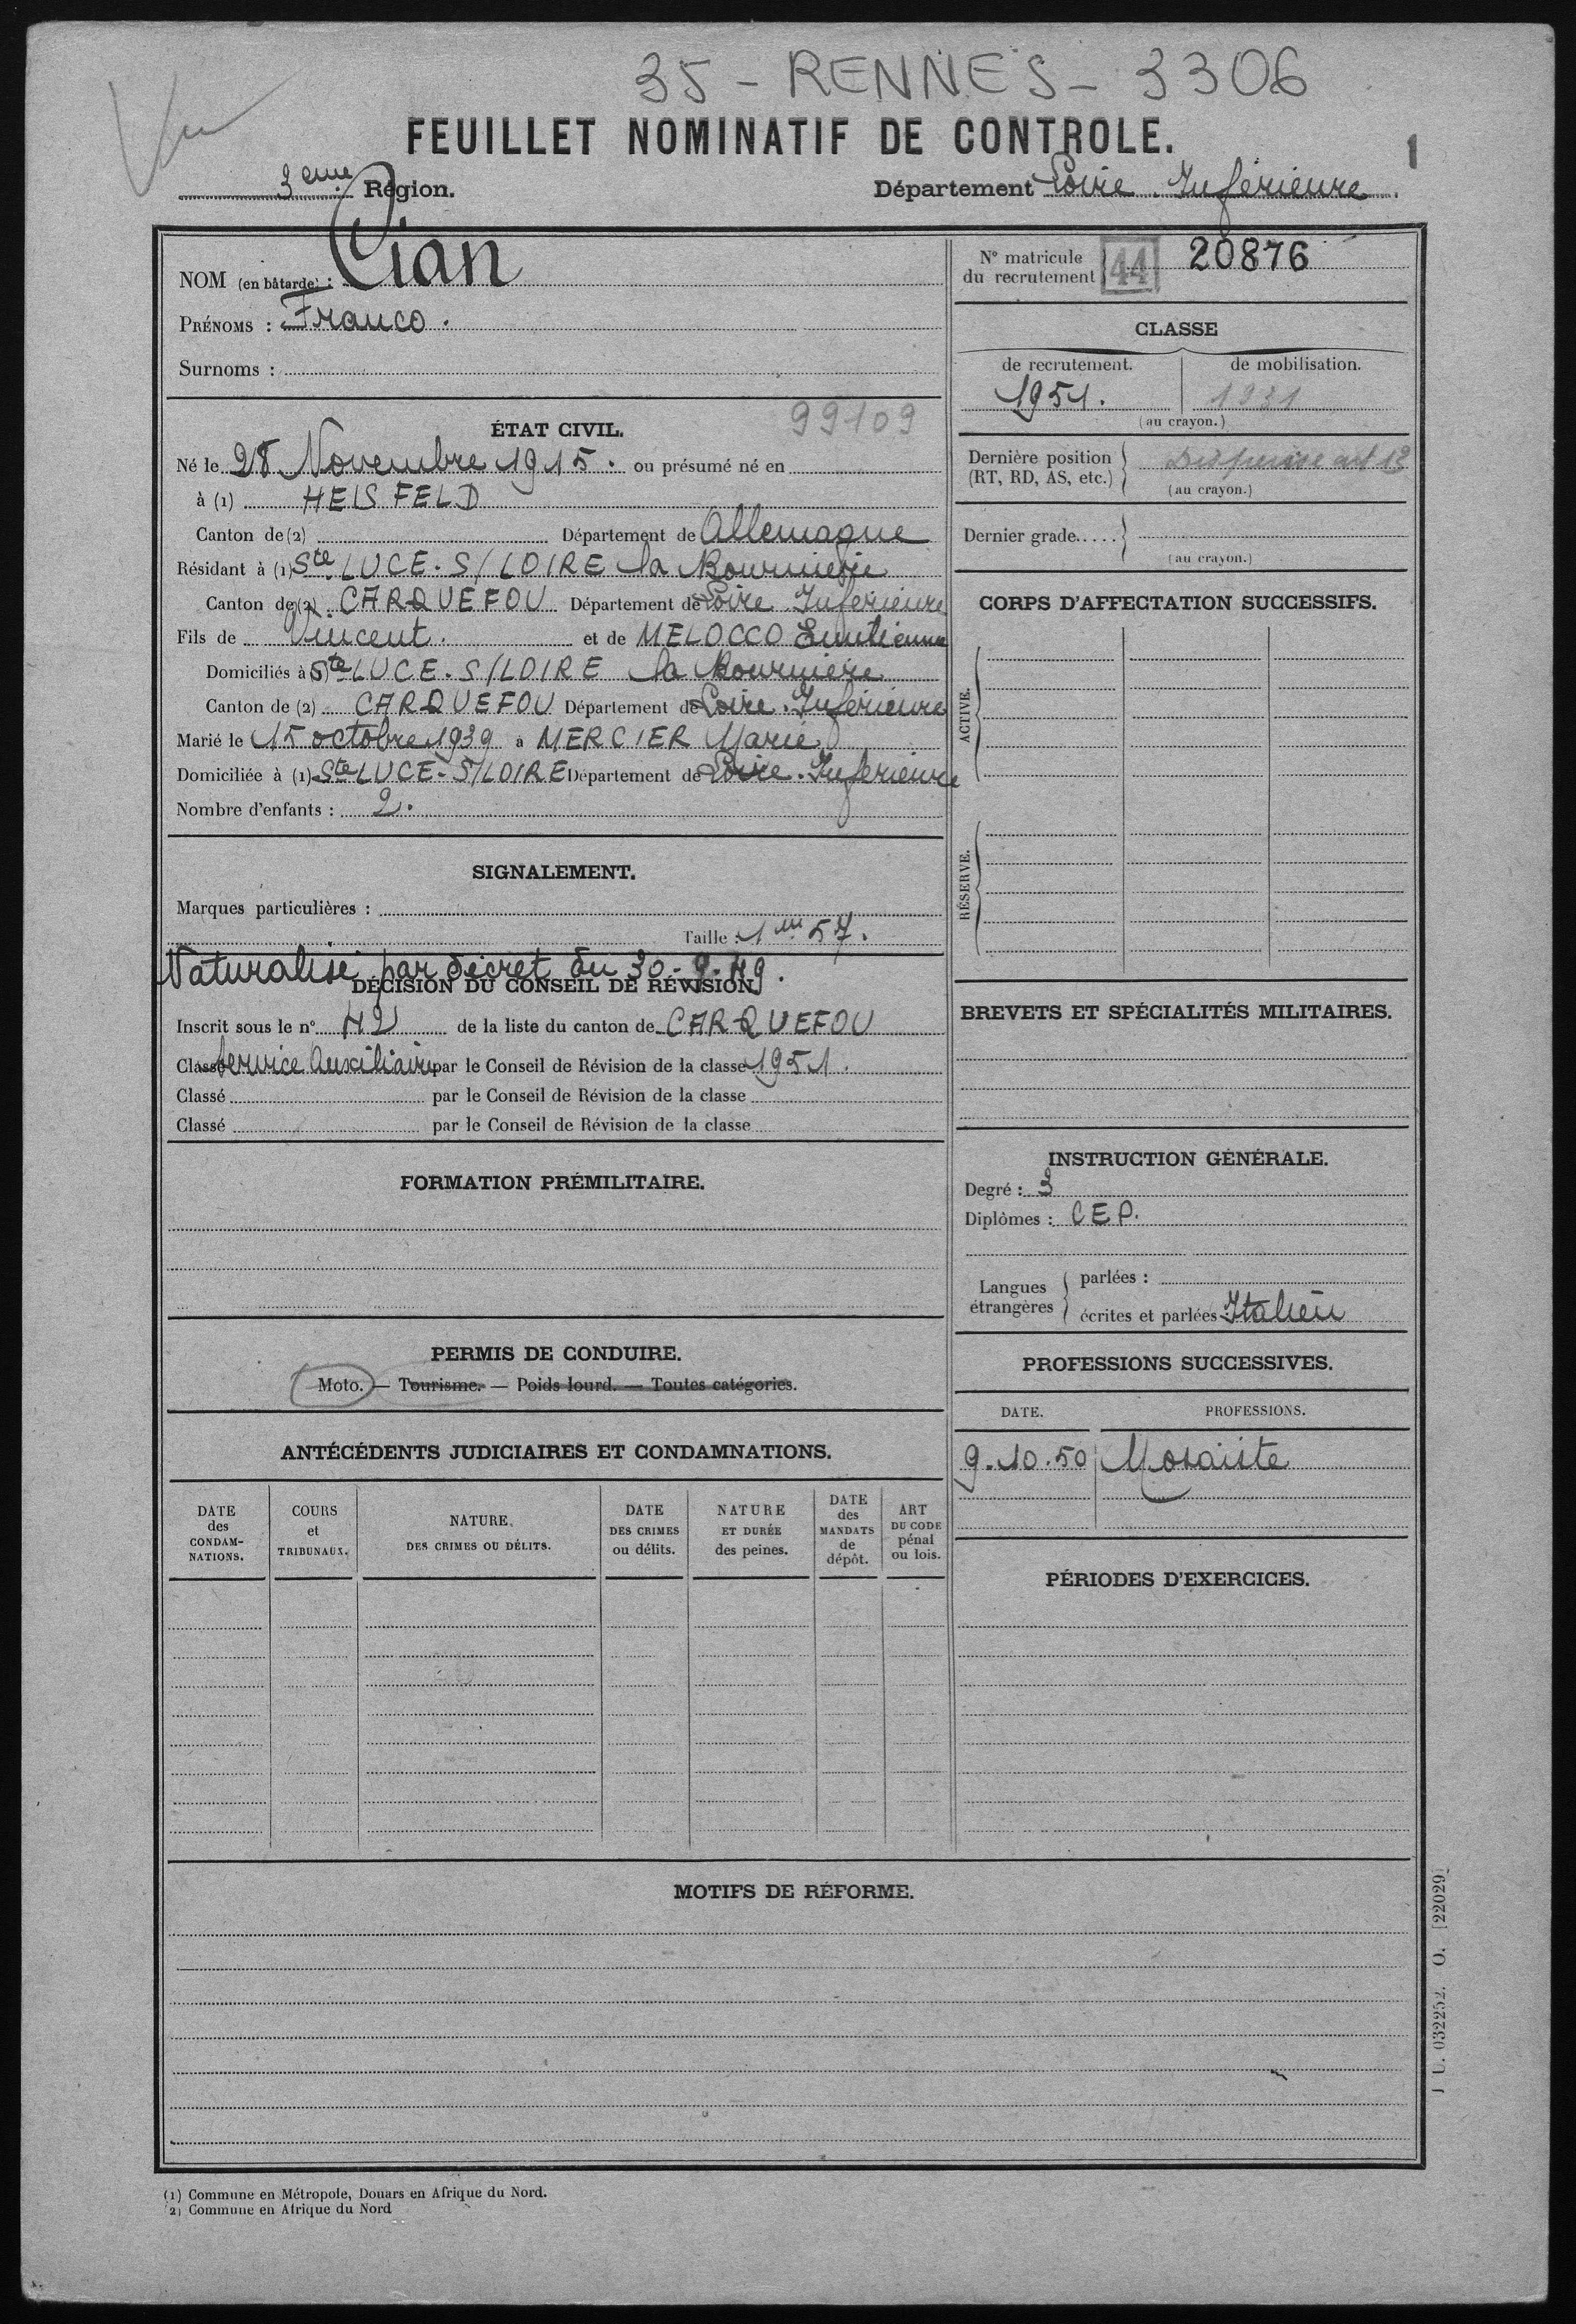 35 - RENNES - 3306
Vu
FEUILLET NOMINATIF DE CONTROLE.
1
3eme Région.
Département Loire Inférieure.
NOM (en bâtarde) : Cian
PRÉNOMS : Franco.
Surnoms :
99109
ÉTAT CIVIL.
Né le 28 Novembre 1915. ou présumé né en
à (1) HELSFELD
Canton de (2) Département de Allemagne
Résidant à (1) Ste LUCE. S/ LOIRE la
Canton de (2) CARQUEFOU Département de Loire Inférieure
Fils de Vincent. et de MELOCCO
Domiciliés à Ste LUCE. S/LOIRE la
Canton de (2) CARQUEFOU Département de Loire. Inférieure
Marié le 15 octobre 1939 à MERCIER Marie
Domiciliée à (1) Ste LUCE-S/LOIRE Département de Loire. Inférieure
Nombre d'enfants : 2.
SIGNALEMENT.
Marques particulières :
Taille : 1m 57.
Naturalisé par décret du 30-9-49.
DÉCISION DU CONSEIL DE RÉVISION
Inscrit sous le n° 42 de la liste du canton de CARQUEFOU
Classé Service Auxiliaire par le Conseil de Révision de la classe 1951.
Classé par le Conseil de Révision de la classe
Classé par le Conseil de Révision de la classe
FORMATION PRÉMILITAIRE.
PERMIS DE CONDUIRE.
Moto. — Tourisme. — Poids lourd. — Toutes catégories.
ANTÉCÉDENTS JUDICIAIRES ET CONDAMNATIONS.
DATE des CONDAMNATIONS.
COURS et TRIBUNAUX.
NATURE DES CRIMES OU DÉLITS.
DATE DES CRIMES ou délits.
NATURE ET DURÉE des peines.
DATE des MANDATS de dépôt.
ART DU CODE pénal ou lois.
N° matricule du recrutement 44 20876
CLASSE
de recrutement. de mobilisation.
1951. 1931
(au crayon.)
Dernière position (RT, RD, AS, etc.) art 12
(au crayon.)
Dernier grade.....
(au crayon.)
CORPS D'AFFECTATION SUCCESSIFS.
ACTIVE.
RÉSERVE.
BREVETS ET SPÉCIALITÉS MILITAIRES.
INSTRUCTION GÉNÉRALE.
Degré : 3
Diplômes : CEP.
Langues étrangères
parlées :
écrites et parlées : Italien
PROFESSIONS SUCCESSIVES.
DATE. PROFESSIONS.
9.10.50 Mosaiste
PÉRIODES D'EXERCICES.
MOTIFS DE RÉFORME.
J. U. 032252. O. [22029]
(1) Commune en Métropole, Douars en Afrique du Nord.
(2) Commune en Afrique du Nord